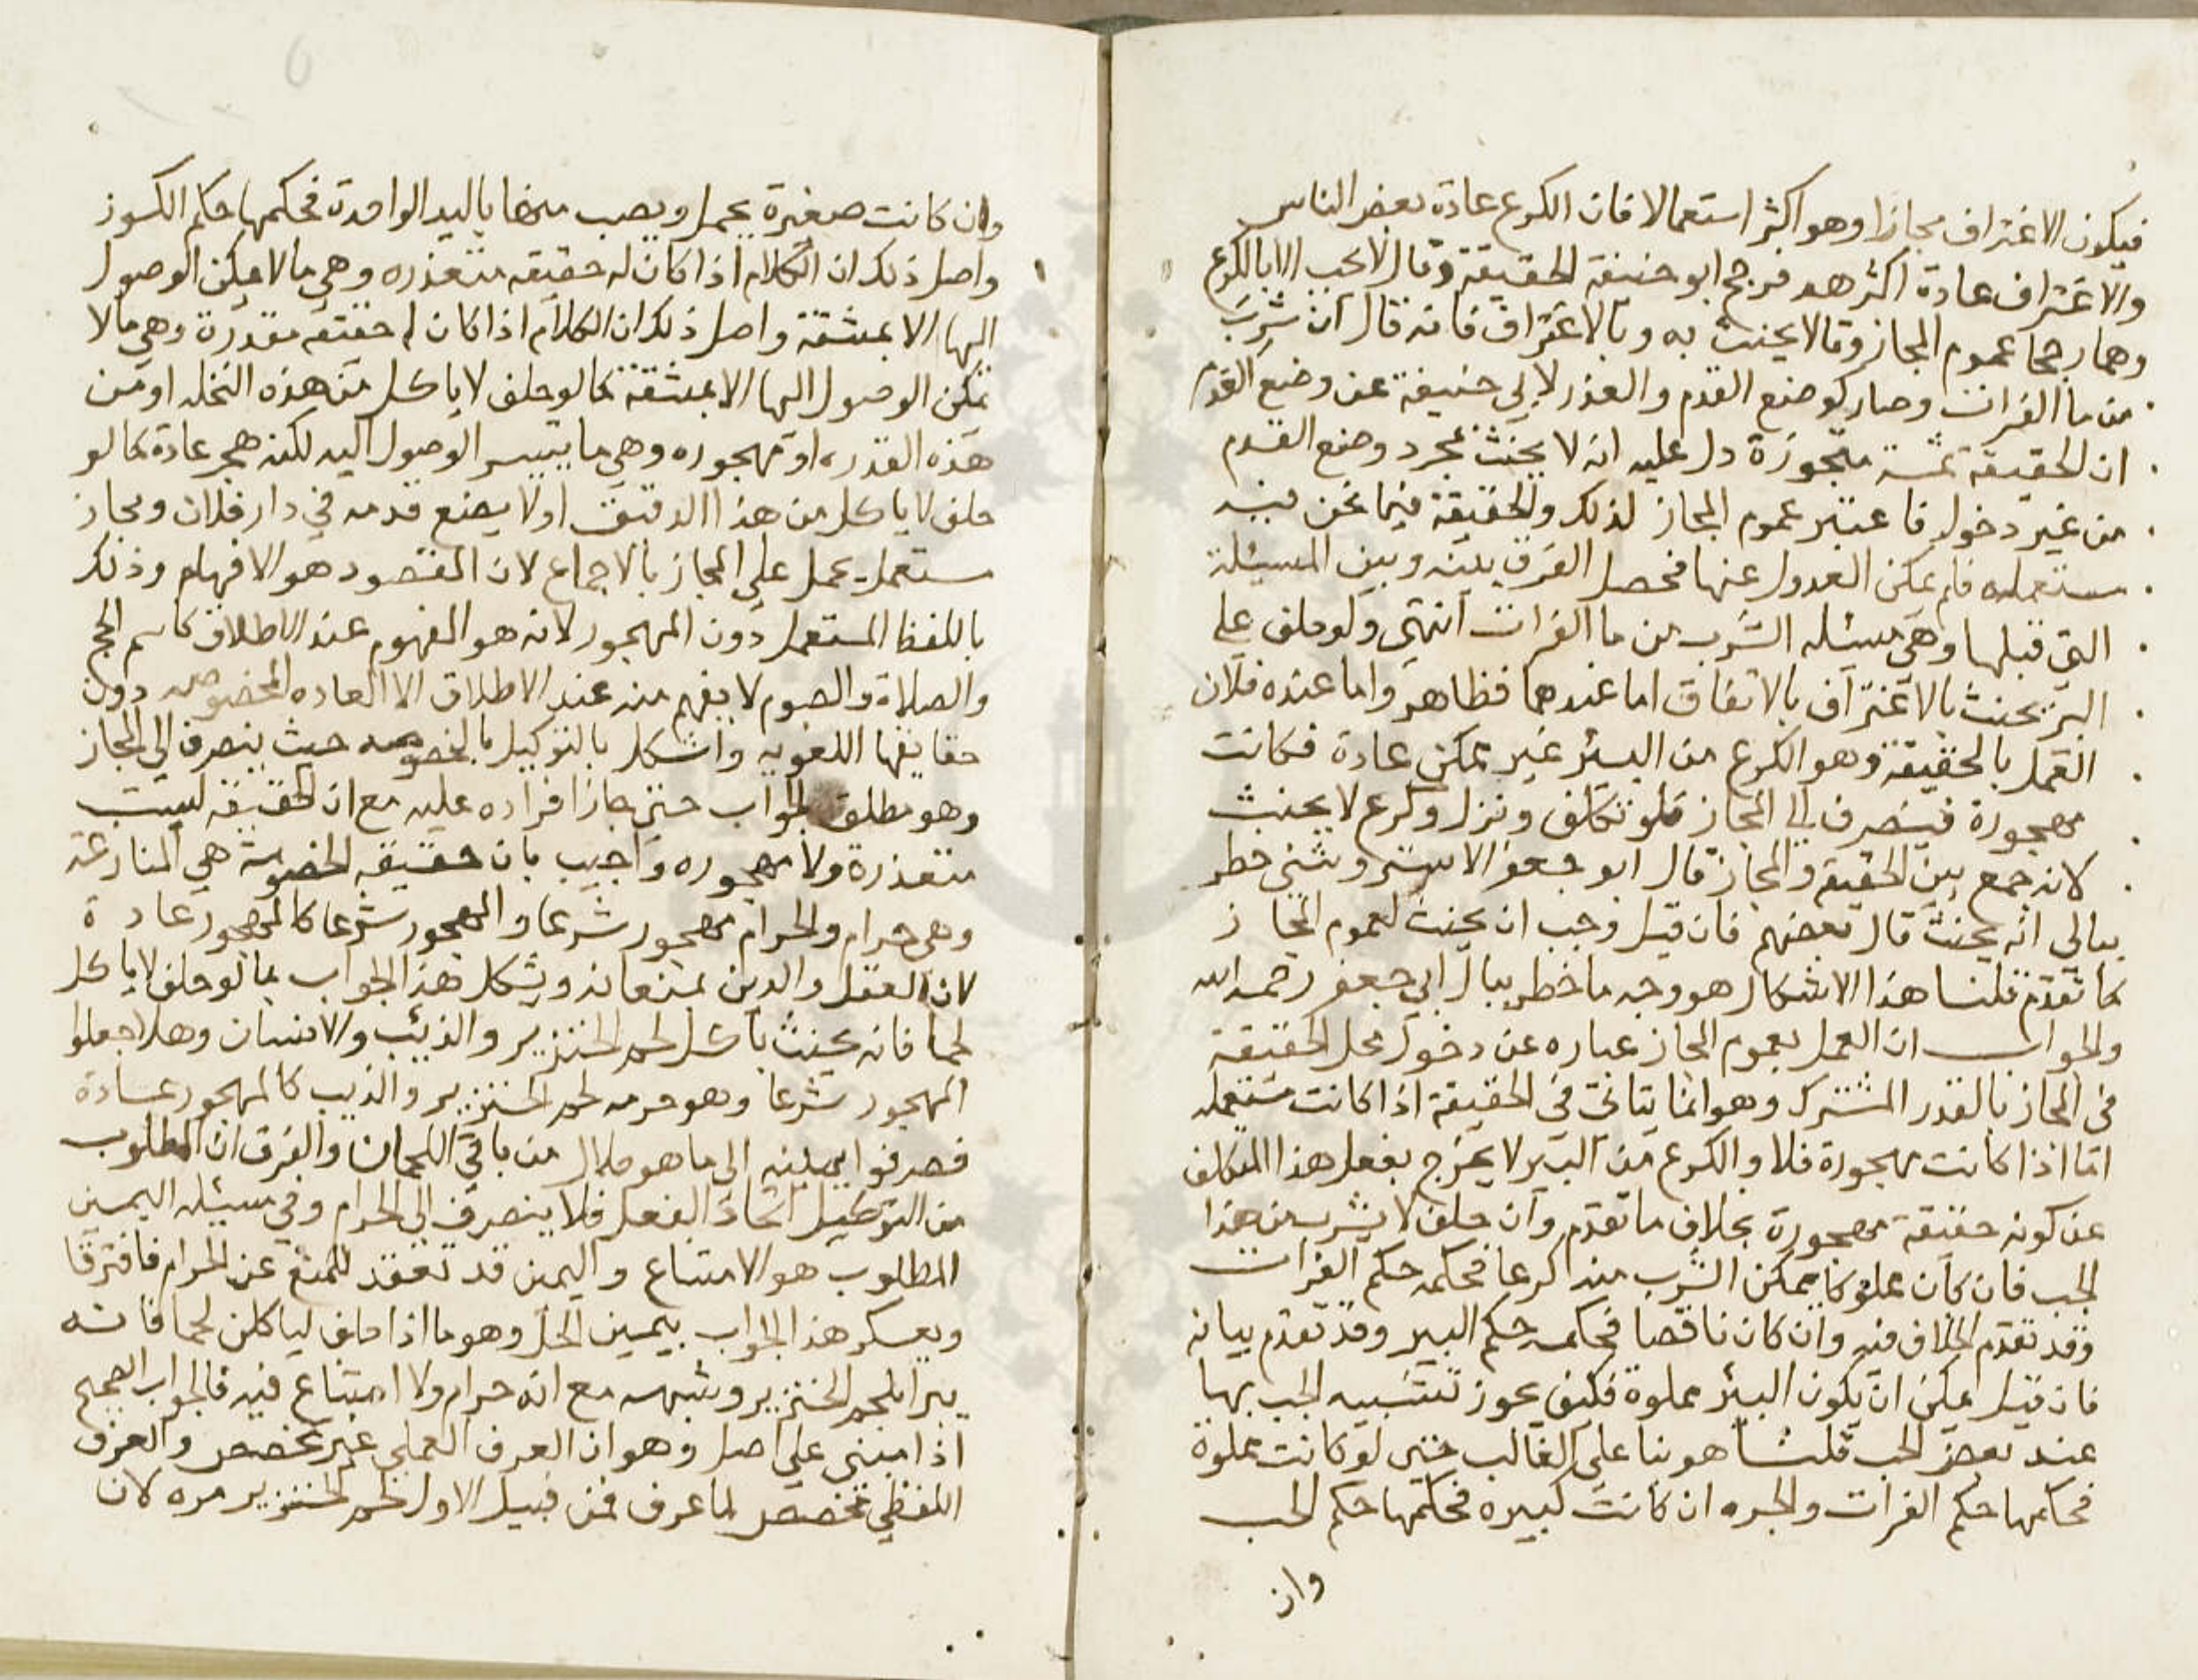 فيكون الاغتراف مجازا وهو اكثر استعمالا فان الكرع عادة بعض الناس
والاغتراف عادة اكثرهم فرجح ابو حنيفة الحقيقة وقال لا يحب الا بالكرع
وهما رجحا عموم المجاز وقالا يحنث به وبالاغتراف فانه قال ان شرب
من ما الفرات وصار كوضع القدم والعذر لابي حنيفة عن وضع القدم
ان الحقيقة ثمة مهجورة دل عليه انه لا يحنث بمجرد وضع القدم
من غير دخول فاعتبر عموم المجاز لذلك والحقيقة فيما نحن فيه
مستعمله فلم يمكن العدول عنها فحصل الفرق بينه وبين المسئلة
التي قبلها وهي مسئله الشرب من ما الفرات انتهى ولو حلف على
البئر يحنث بالاغتراف بالاتفاق اما عندهما فظاهر واما عنده فلان
العمل بالحقيقة وهو الكرع من البئر غير ممكن عادة فكانت
مهجورة فينصرف الى المجاز فلو تكلف ونزل وكرع لا يحنث
لانه جمع بين الحقيقة والمجاز قال ابو جعفر الاستر وشني خطر
ببالي انه يحنث قال بعضهم فان قيل وجب ان يحنث لعموم المجاز
كما تقدم قلنا هذا الاشكال هو وجه ما خطر ببال ابي جعفر رحمه الله
والجواب ان العمل بعموم المجاز عباره عن دخول محل الحقيقة
في المجاز بالقدر المشترك وهو انما يتاتى في الحقيقة اذا كانت مستعمله
اما اذا كانت مهجورة فلا والكرع من البير لا يخرج بفعل هذا المتكلف
عن كونه حقيقة مهجورة بخلاف ما تقدم وان حلف لا يشرب من هذا
الجب فان كان مملوكا يمكن الشرب منه كرعا فحكمه حكم الفرات
وقد تقدم الخلاف فيه وان كان ناقصا فحكمه حكم البير وقد تقدم بيانه
فان قيل يمكن ان يكون البئر مملوة فكيف يجوز تشبيه الجب بها
عند بعض الجب قلنا هو بنا على الغالب حتى لو كانت مملوة
فحكمها حكم الفرات والجره ان كانت كبيره فحكمها حكم الجب
وان
وان كانت صغيرة يحمل ويصب منها باليد الواحدة فحكمها حكم الكوز
واصل ذلك ان الكلام اذا كان له حقيقه متعذره وهي ما لا يمكن الوصول
اليها الا بمشقة واصل ذلك ان الكلام اذا كان له حقيقه متعذرة وهي ما لا
يمكن الوصول اليها الا بمشقة كما لو حلف لا ياكل من هذه النخله او من
هذه القدر او مهجوره وهي ما يتيسر الوصول اليه لكنه هجر عادة كما لو
حلف لا ياكل من هذا الدقيق او لا يضع قدمه في دار فلان ومجاز
مستعمل يحمل على المجاز بالاجماع لان المقصود هو الافهام وذلك
باللفظ المستعمل دون المهجور لانه هو المفهوم عند الاطلاق كاسم الحج
والصلاة والصوم لا يفهم منه عند الاطلاق الا العاده المخصوصه دون
حقايقها اللغويه واشكل بالتوكيل بالخصومه حيث ينصرف الى المجاز
وهو مطلق الجواب حتى جاز اقراره عليه مع ان الحقيقة ليست
متعذرة ولا مهجوره واجيب بان حقيقه الخصومة هي المنازعة
وهي حرام والحرام مهجور شرعا والمهجور شرعا كالمهجور عادة
لان العقل والدين يمنعانه ويشكل هذا الجواب بما لو حلف لا ياكل
لحما فانه يحنث باكل لحم الخنزير والذيب والانسان وهلا جعلوا
المهجور شرعا وهو حرمه لحم الخنزير والذيب كالمهجور عادة
فصرفوا يمينه الى ما هو حلال من باقي اللحمان والفرق ان المطلوب
من التوكيل اتخاذ الفعل فلا ينصرف الى الحرام وفي مسئله اليمين
المطلوب هو الامتناع واليمين قد تعقد للمنع عن الحرام فافترقا
ويعسكر هذا الجواب بيمين الحل وهو ما اذا حلف لياكلن لحما فانه
يبر بلحم الخنزير وشبهه مع انه حرام ولا امتناع فيه فالجواب الصحيح
اذا مبني على اصل وهو ان العرف العملي غير مخصص والعرف
اللفظي مخصص لما عرف فمن قبيل الاول لحم الخنزير مره لان